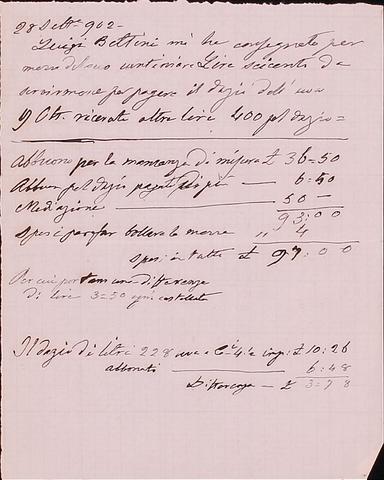 28 Sett.re 902 -
Luigi Bettini mi ha consegnato per
mezzo del suo cantiniere Lire seicento da
servirmene per pagare il dazio dell' uva
9 Ott. ricevute altre lire 400 pel dazio =
Abbuono per la mancanza di misura £ 36=50
Abbuon pel dazio pagato di più — 6:50
Mediazione 50 -
93:00
Spesi per far bollare la 4
Spesi in tutto £ 97:00
Per cui portano una differenza
di lire 3=50 ogni castellata
Il dazio di litri 228 uva £ 10:26
abbonati 6:48
Differenza — £ 3=78